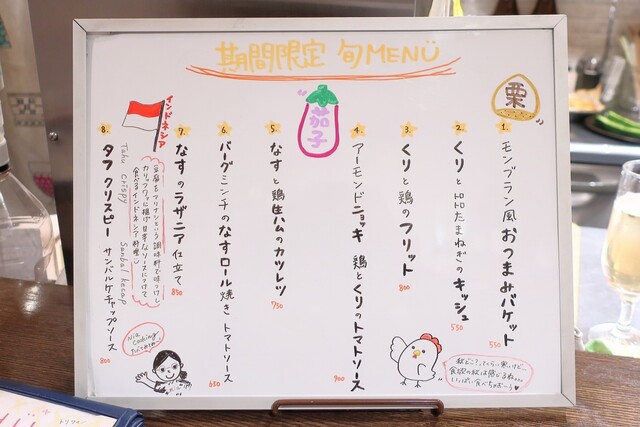 期間限定 旬MENU
栗
1. モンブラン風 おつまみバケット 550
2. くりと とろとろたまねぎのキッシュ 550
3. くりと鶏のフリット 800
4. アーモンドニョッキ 鶏とくりのトマトソース 900
茄子
5. なすと鶏生ハムのカツレツ 750
6. バーグミンチのなすロール焼き トマトソース 650
7. なすのラザニア仕立て 850
インドネシア
豆腐をマリナシという調味料で味つけし
カリッフワッに揚げ 甘辛なソースにつけて
食べるインドネシア料理
8. タフ クリスピー サンバルケチャップソース 800
Tahu crispy Sanbal kecap
秋どこ？ってくらい暑いけど…
食欲の秋は感じるね…
いっぱい食べちゃおーう
Nia cooking